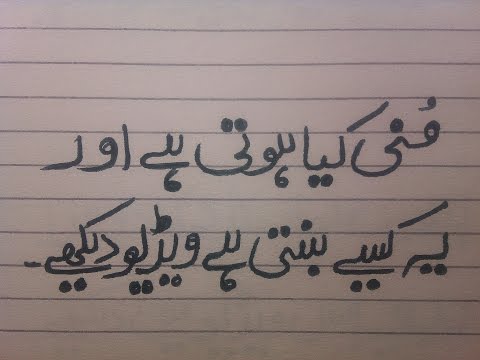 مُنی کیا ہوتی ہے اور
یہ کیسے بنتی ہے ویڈیو دیکھیے۔